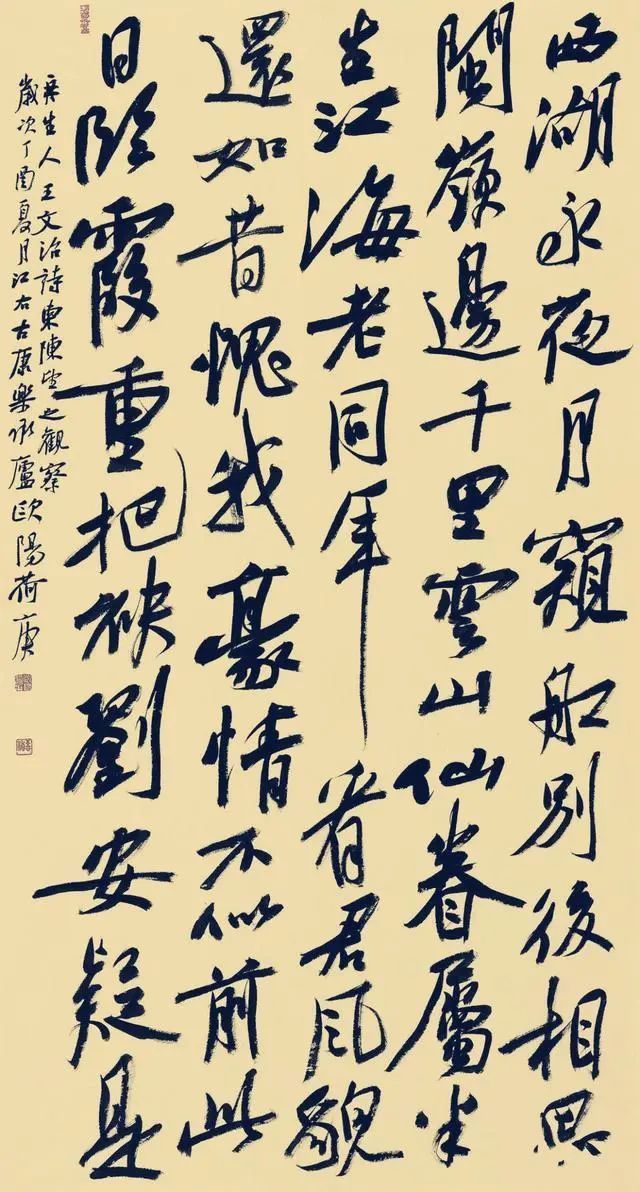 西湖永夜月窺船別後相思
閩嶺邊千里雲山仙眷屬半
生江海老同年看君風貌
還如昔愧我豪情不似前此
日霞重把袂劉安疑是
生人王文治詩柬陳望之觀察
歲次丁酉夏月江右古康樂廬歐陽荷庚